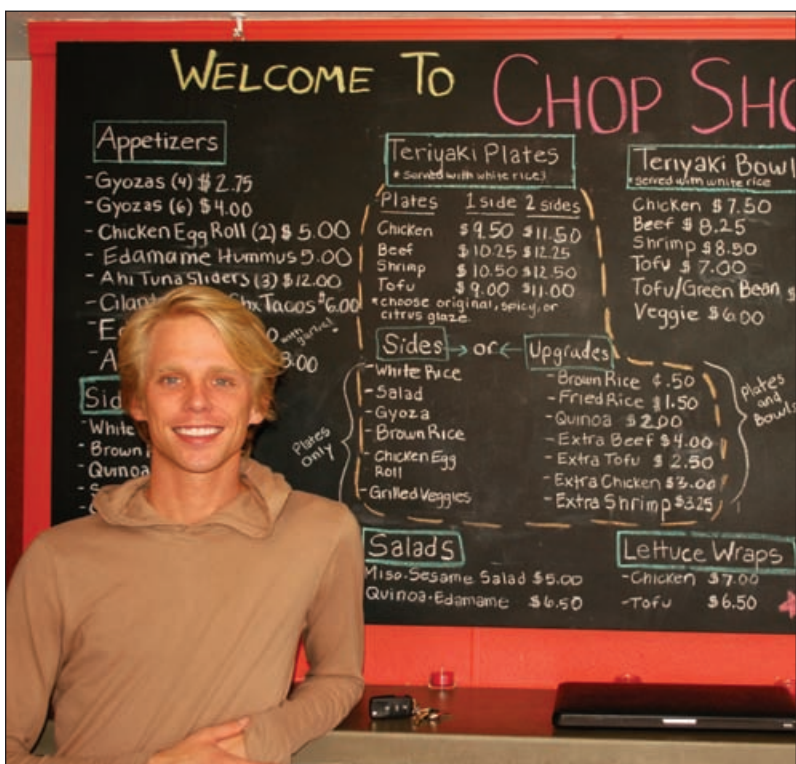 WELCOME TO CHOP SHO
Appetizers
-Gyozas (4) $2.75
-Gyozas (6) $4.00
-Chicken Egg Roll (2) $5.00
-Edamame Hummus 5.00
-Ahi Tuna Sliders (3) $12.00
-Cilant Tacos $6.00
with garlic! *
3.00
Sid
-White
-Brown
-Quinoa
Teriyaki Plates
* served with white rice!
Plates 1 side 2 sides
Chicken $9.50 $11.50
Beef $10.25 $12.25
Shrimp $10.50 $12.50
Tofu $9.00 $11.00
*choose original, spicy, or
citrus glaze
Sides → or ← Upgrades
Plates
Only
-White Rice
-Salad
-Gyoza
-Brown Rice
-Chicken Egg
Roll
-Grilled Veggies
-Brown Rice ¢.50
-Fried Rice $1.50
-Quinoa $2.00
-Extra Beef $4.00
-Extra Tofu $2.50
-Extra Chicken $3.00
-Extra Shrimp $3.25
Plates
and
Bowls
Teriyaki Bowl
*served with white rice
Chicken $7.50
Beef $8.25
Shrimp $8.50
Tofu $7.00
Tofu/Green Bean $
Veggie $6.00
Salads
Miso-Sesame Salad $5.00
Quinoa-Edamame $6.50
Lettuce Wraps
-Chicken $7.00
-Tofu $6.50